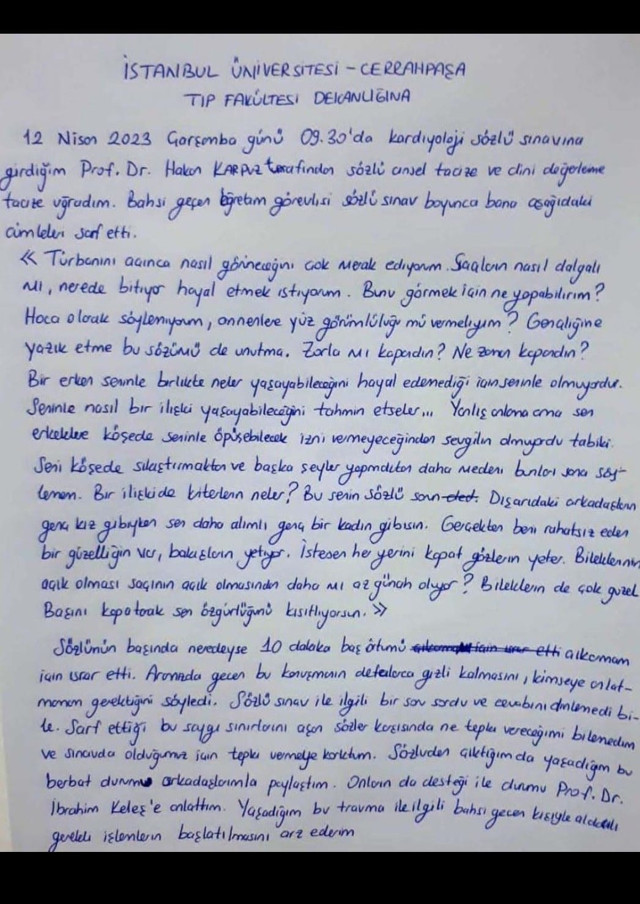 İSTANBUL ÜNİVERSİTESİ - CERRAHPAŞA
TIP FAKÜLTESİ DEKANLIĞINA
12 Nisan 2023 Çarşamba günü 09.30'da kardiyoloji sözlü sınavına
girdiğim Prof. Dr. Hakan KARPUZ tarafından sözlü cinsel tacize ve dini değerlerime
tacize uğradım. Bahsi geçen öğretim görevlisi sözlü sınav boyunca bana aşağıdaki
cümleleri sarf etti.
<< Türbanını açınca nasıl görüneceğini çok merak ediyorum. Saçların nasıl dalgalı
mı, nerede bitiyor hayal etmek istiyorum. Bunu görmek için ne yapabilirim?
Hoca olarak söyleniyorum, annenlere yüz görümlülüğü mü vermeliyim? Gençliğine
yazık etme bu sözümü de unutma. Zorla mı kapandın? Ne zaman kapandın?
Bir erkek seninle birlikte neler yaşayabileceğini hayal edemediği için seninle olmuyordur.
Seninle nasıl bir ilişki yaşayabileceğini tahmin etseler... Yanlış anlama ama sen
erkeklere köşede seninle öpüşebilecek izni vermeyeceğinden sevgilin olmuyordu tabiki.
Seni köşede sıkıştırmaktan ve başka şeyler yapmaktan daha medeni bunları sana söy-
lemem. Bir ilişkide kriterlerin neler? Bu senin sözlü sorun Dışarıdaki arkadaşların
genç kız gibiyken sen daha alımlı genç bir kadın gibisin. Gerçekten beni rahatsız eden
bir güzelliğin var, bakışların yetiyor. İstersen her yerini kapat gözlerin yeter. Bileklerinin
açık olması saçının açık olmasından daha mı az günah oluyor? Bileklerin de çok güzel
Başını kapatarak sen özgürlüğünü kısıtlıyorsun. >>
Sözlünün başında neredeyse 10 dakika baş örtümü çıkarmam
için ısrar etti. Aramızda geçen bu konuşmanın defalarca gizli kalmasını, kimseye anlat-
mamam gerektiğini söyledi. Sözlü sınav ile ilgili bir soru sordu ve cevabını dinlemedi bi-
le. Sarf ettiği bu saygı sınırlarını aşan sözler karşısında ne tepki vereceğimi bilemedim
ve sınavda olduğumuz için tepki vermeye korktum. Sözlüden çıktığımda yaşadığım bu
berbat durumu arkadaşlarımla paylaştım. Onların da desteği ile durumu Prof. Dr.
İbrahim Keleş'e anlattım. Yaşadığım bu travma ile ilgili bahsi geçen kişiyle alakalı
gerekli işlemlerin başlatılmasını arz ederim